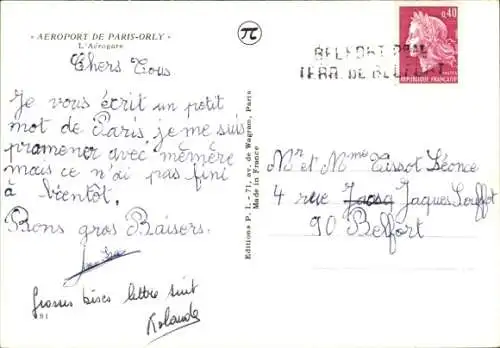 « AEROPORT DE PARIS-ORLY »
L'Aérogare
Chers Tous
Je vous écrit un petit
mot de Paris je me suis
promener avec mémère
mais ce n'ai pas fini
à bientôt.
Bons gros Baisers.
Grosses bises lettre suit
Rolande
91
Editions P. I. - 71, av. de Wagram, Paris
Made in France
0,40
REPUBLIQUE FRANÇAISE
BELFORT PPAL
TERR. DE BELFORT
Mr et Mme Tissot Léonce
4 rue Jacques Jouffot
90 Belfort